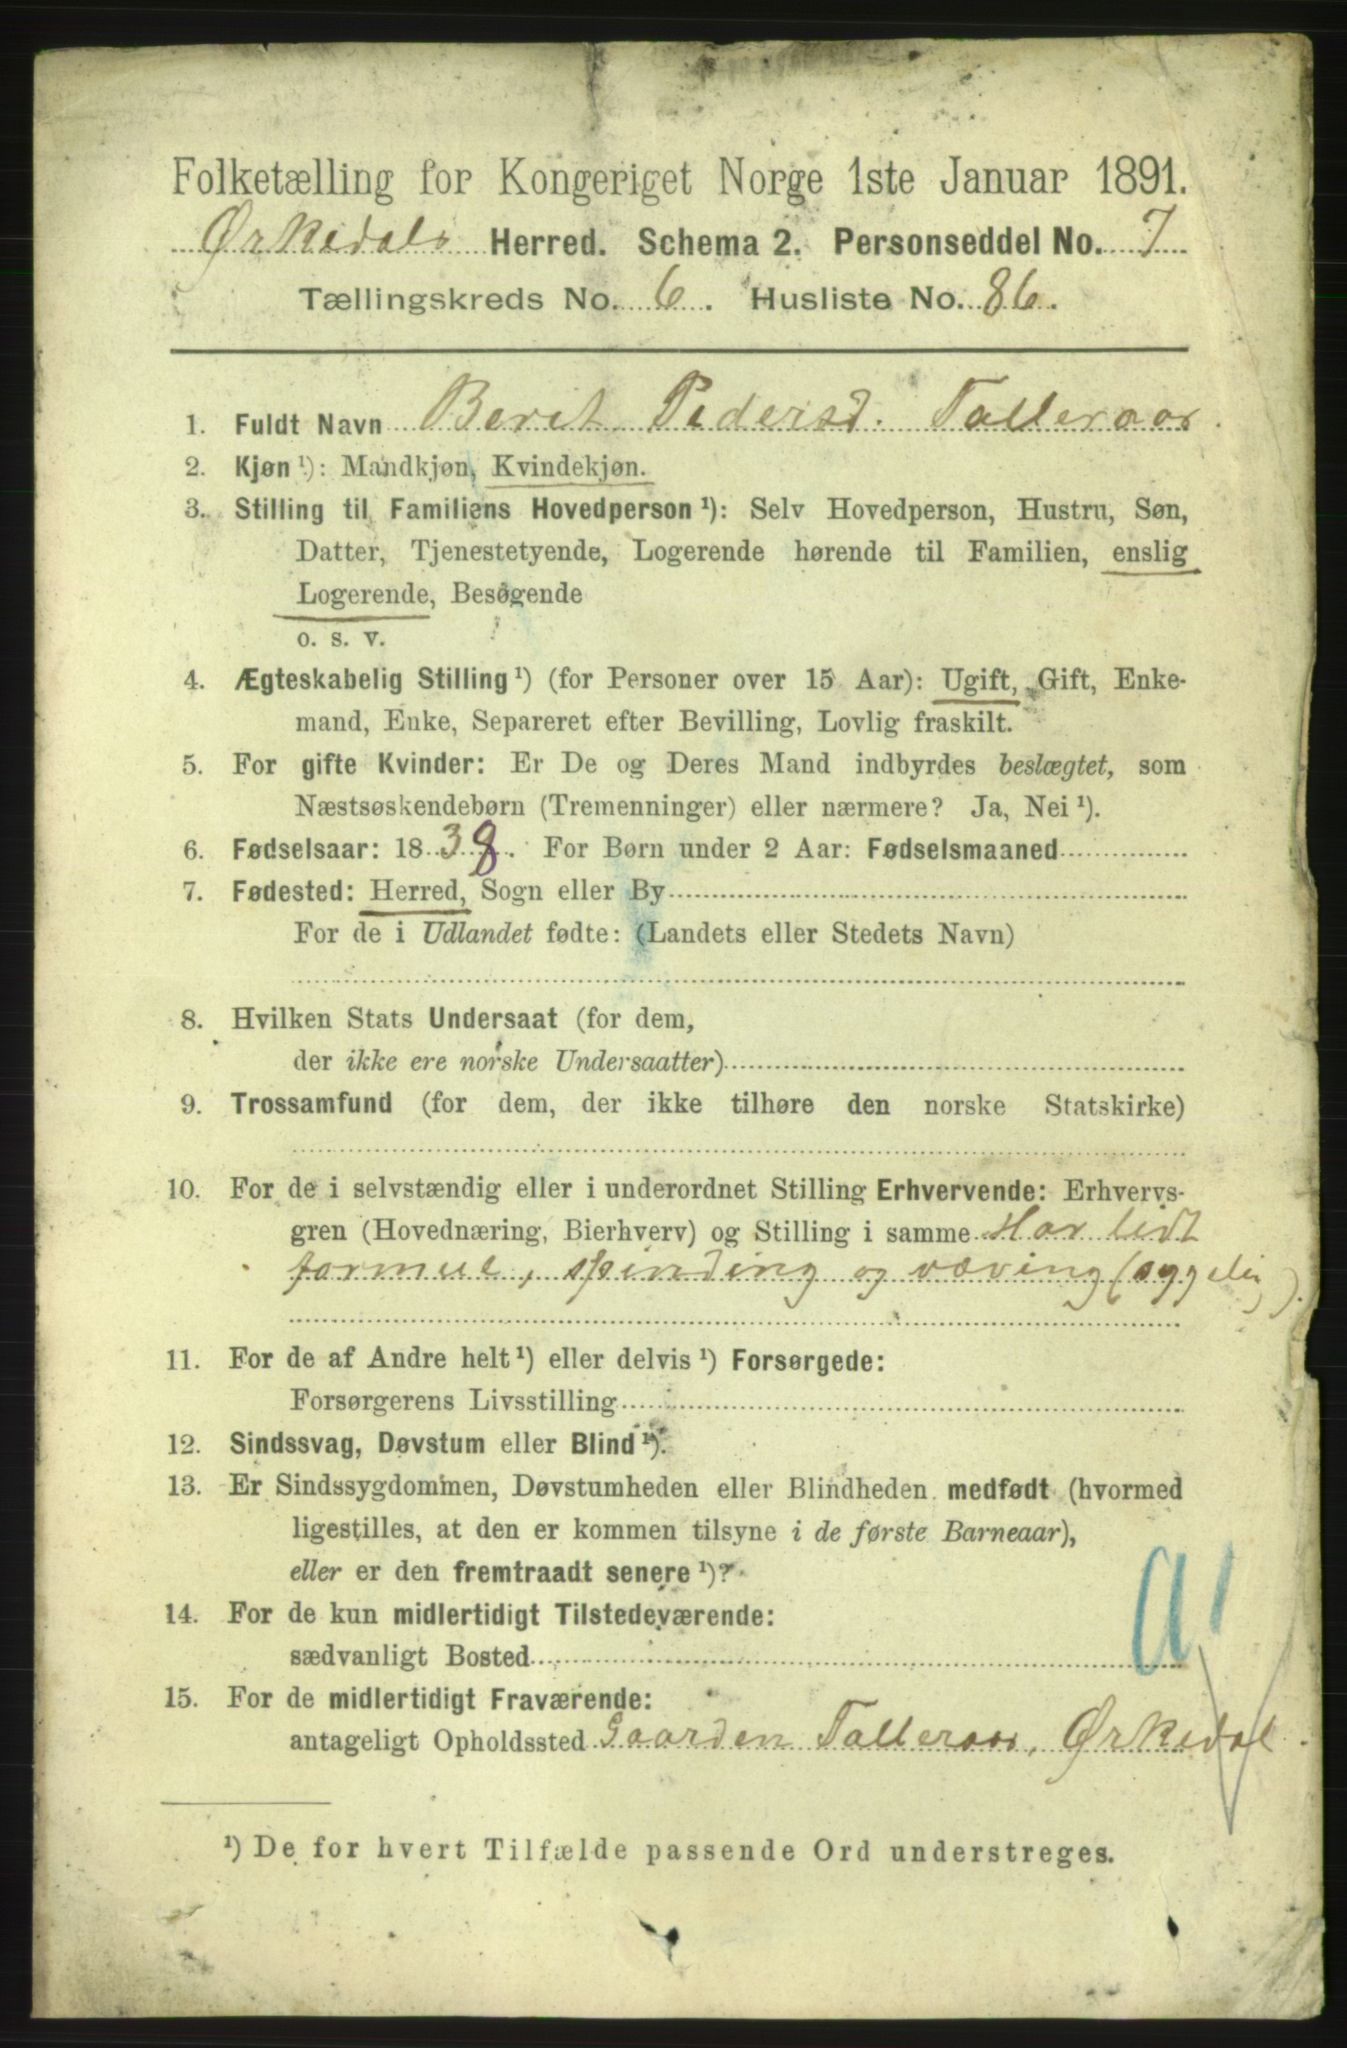 Folketælling for Kongeriget Norge 1ste Januar 1891.
Ørkedals Herred. Schema 2. Personseddel No. 7
Tællingskreds No. 6. Husliste No. 86.
1. Fuldt Navn Berit Pedersd. Talleraas
2. Kjøn ¹): Mandkjøn, Kvindekjøn.
3. Stilling til Familiens Hovedperson ¹): Selv Hovedperson, Hustru, Søn,
Datter, Tjenestetyende, Logerende hørende til Familien, enslig
Logerende, Besøgende
o. s. v.
4. Ægteskabelig Stilling ¹) (for Personer over 15 Aar): Ugift, Gift, Enke-
mand, Enke, Separeret efter Bevilling, Lovlig fraskilt.
5. For gifte Kvinder: Er De og Deres Mand indbyrdes beslægtet, som
Næstsøskendebørn (Tremenninger) eller nærmere? Ja, Nei ¹).
6. Fødselsaar: 1838. For Børn under 2 Aar: Fødselsmaaned
7. Fødested: Herred, Sogn eller By
For de i Udlandet fødte: (Landets eller Stedets Navn)
8. Hvilken Stats Undersaat (for dem,
der ikke ere norske Undersaatter)
9. Trossamfund (for dem, der ikke tilhøre den norske Statskirke)
10. For de i selvstændig eller i underordnet Stilling Erhvervende: Erhvervs-
gren (Hovednæring, Bierhverv) og Stilling i samme Har lidt
formue, spinding og væving
11. For de af Andre helt ¹) eller delvis ¹) Forsørgede:
Forsørgerens Livsstilling
12. Sindssvag, Døvstum eller Blind ¹).
13. Er Sindssygdommen, Døvstumheden eller Blindheden medfødt (hvormed
ligestilles, at den er kommen tilsyne i de første Barneaar),
eller er den fremtraadt senere ¹)?
14. For de kun midlertidigt Tilstedeværende:
sædvanligt Bosted
15. For de midlertidigt Fraværende:
antageligt Opholdssted Gaarden Talleraas, Ørkedal.
¹) De for hvert Tilfælde passende Ord understreges.